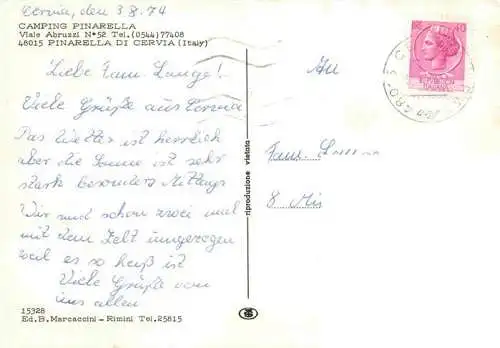 Cervia, den 3.8.74
CAMPING PINARELLA
Viale Abruzzi N°52 Tel.(0544)77408
48015 PINARELLA DI CERVIA (Italy)
Liebe Fam. Lange!
Viele Grüße aus Cervia
Das Wetter ist herrlich
aber die Sonne ist sehr
stark besonders Mittags
Wir sind schon zwei mal
mit dem Zelt umgezogen
weil es so heiß ist
Viele Grüße von
uns allen
15328
Ed.B.Marcaccini - Rimini Tel.25815
riproduzione vietata
An
Fam.
8